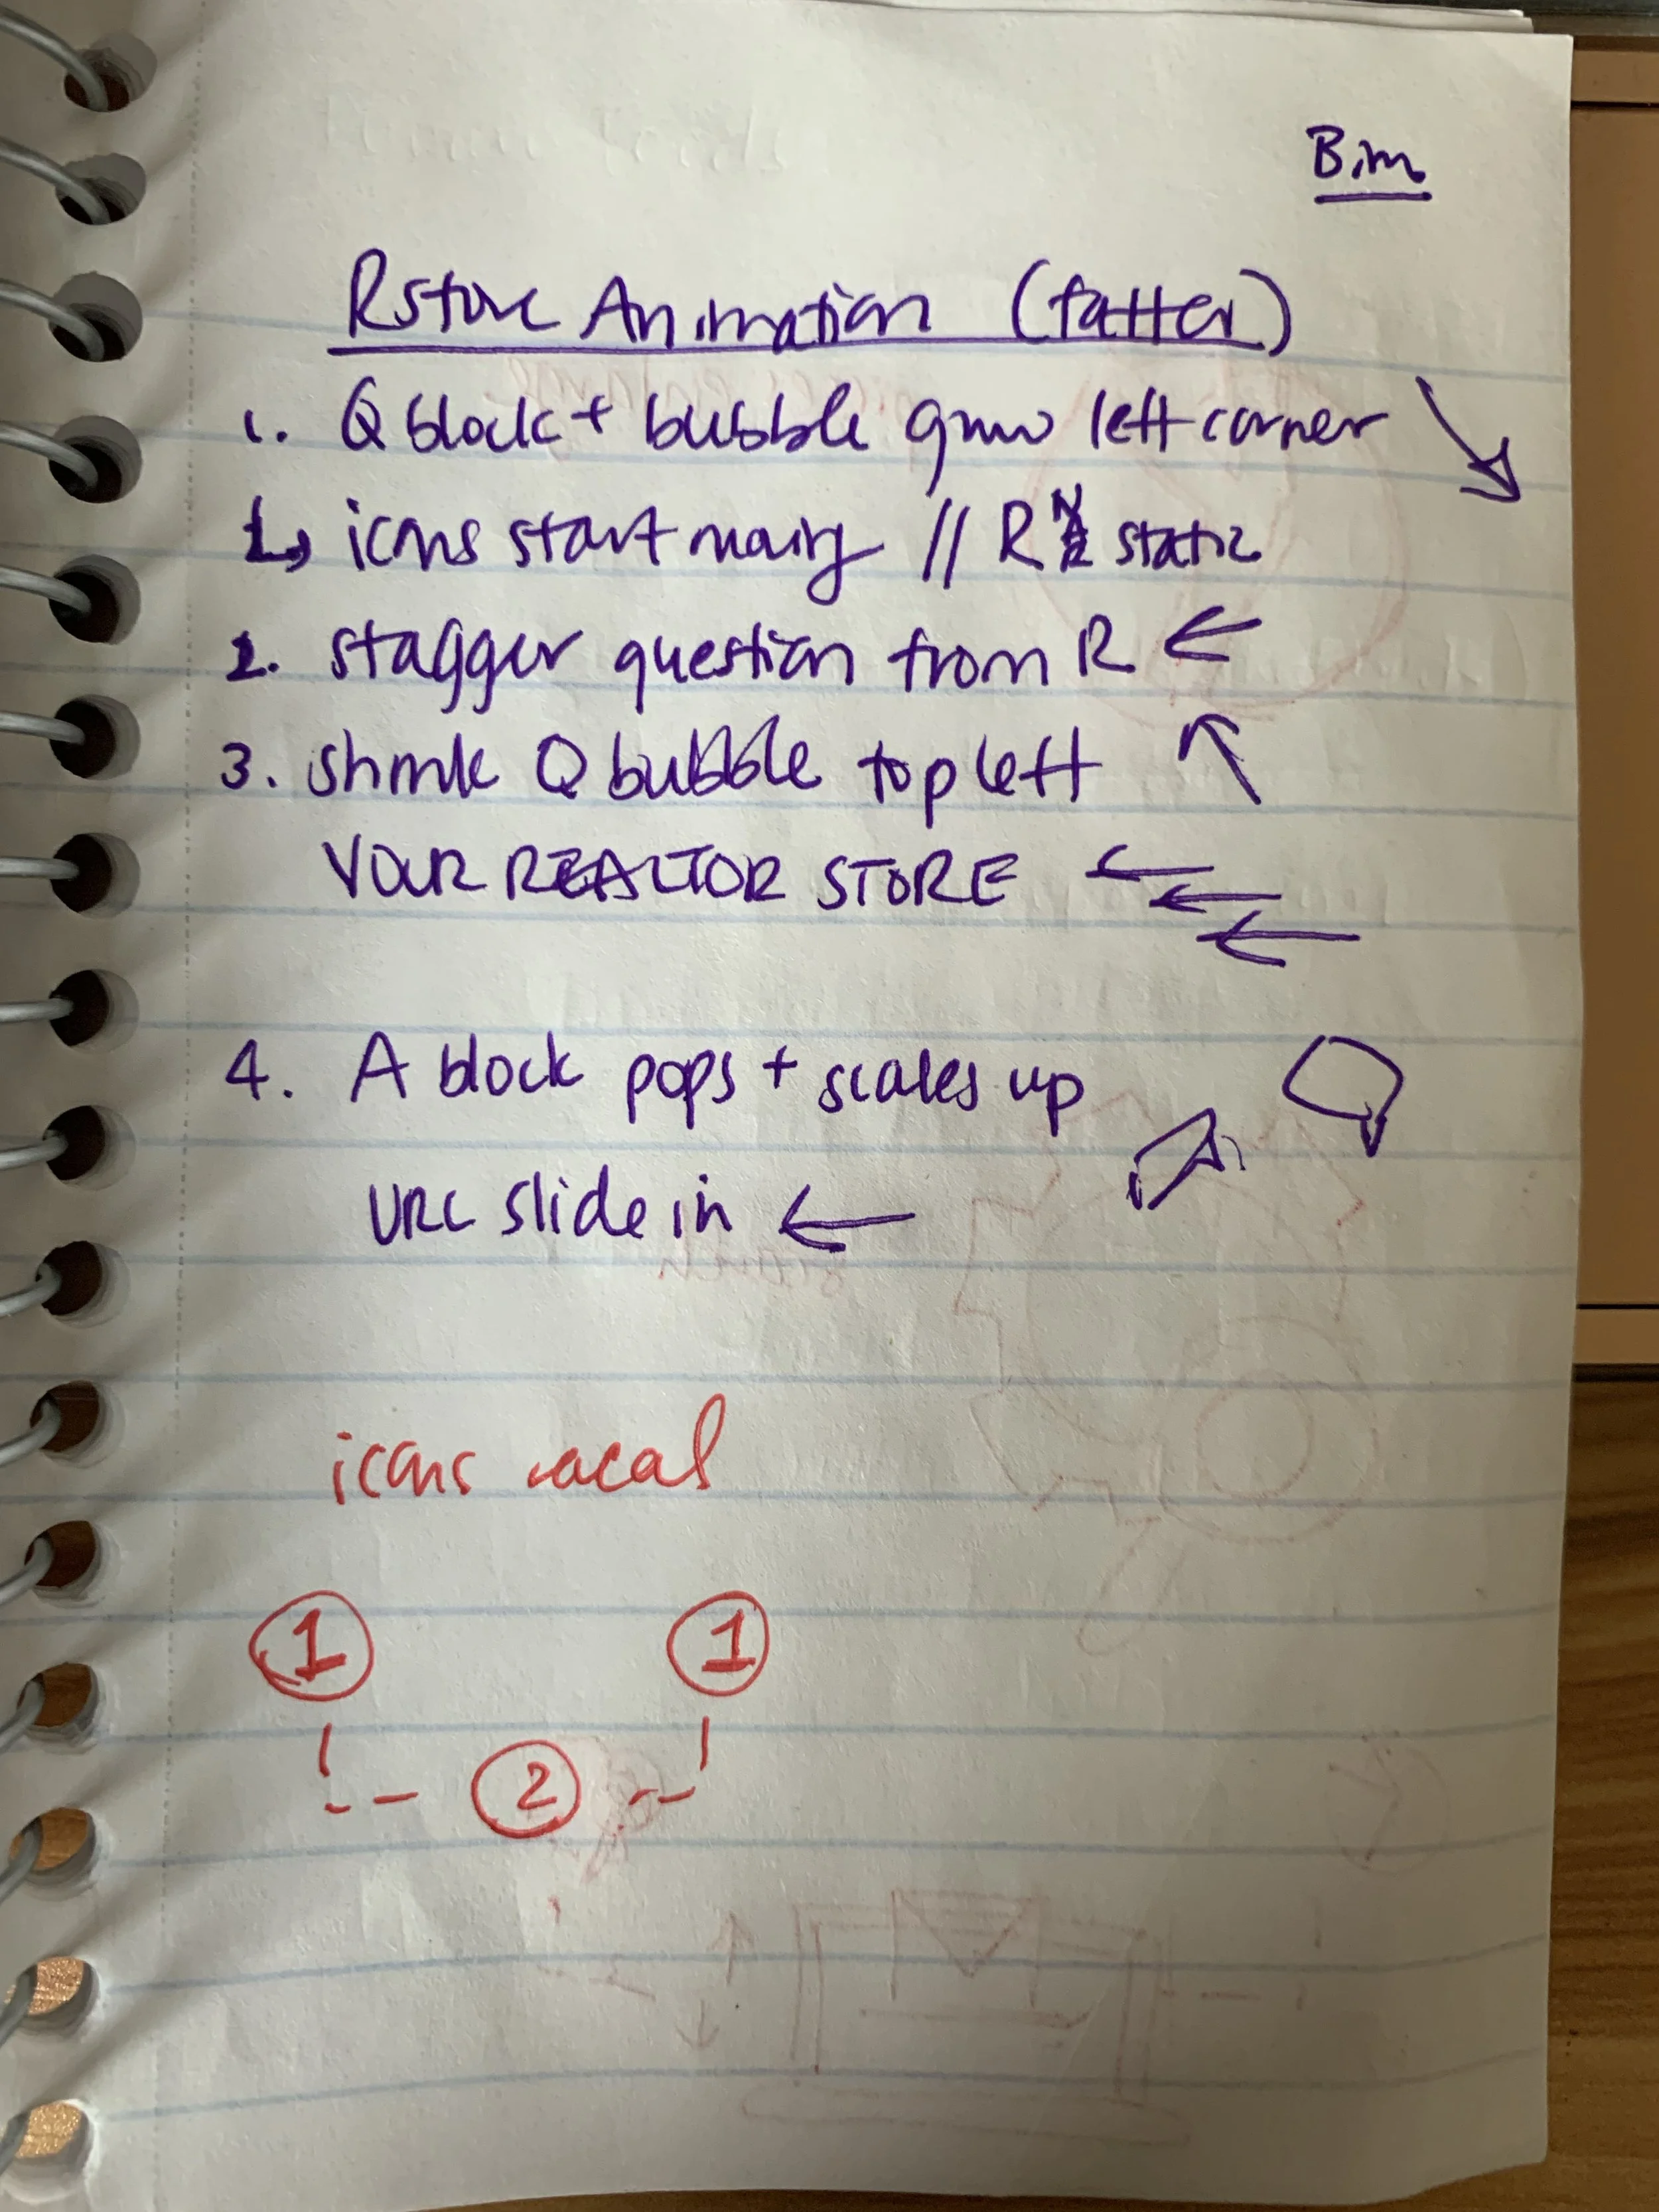 Bim
Rstore Animation (fatter)
1. Q block + bubble grow left corner
icons start moving // R static
2. stagger question from R ←
3. shrink Q bubble top left
YOUR REALTOR STORE ←
4. A block pops + scales up
URL slide in ←
icons
1 1
2